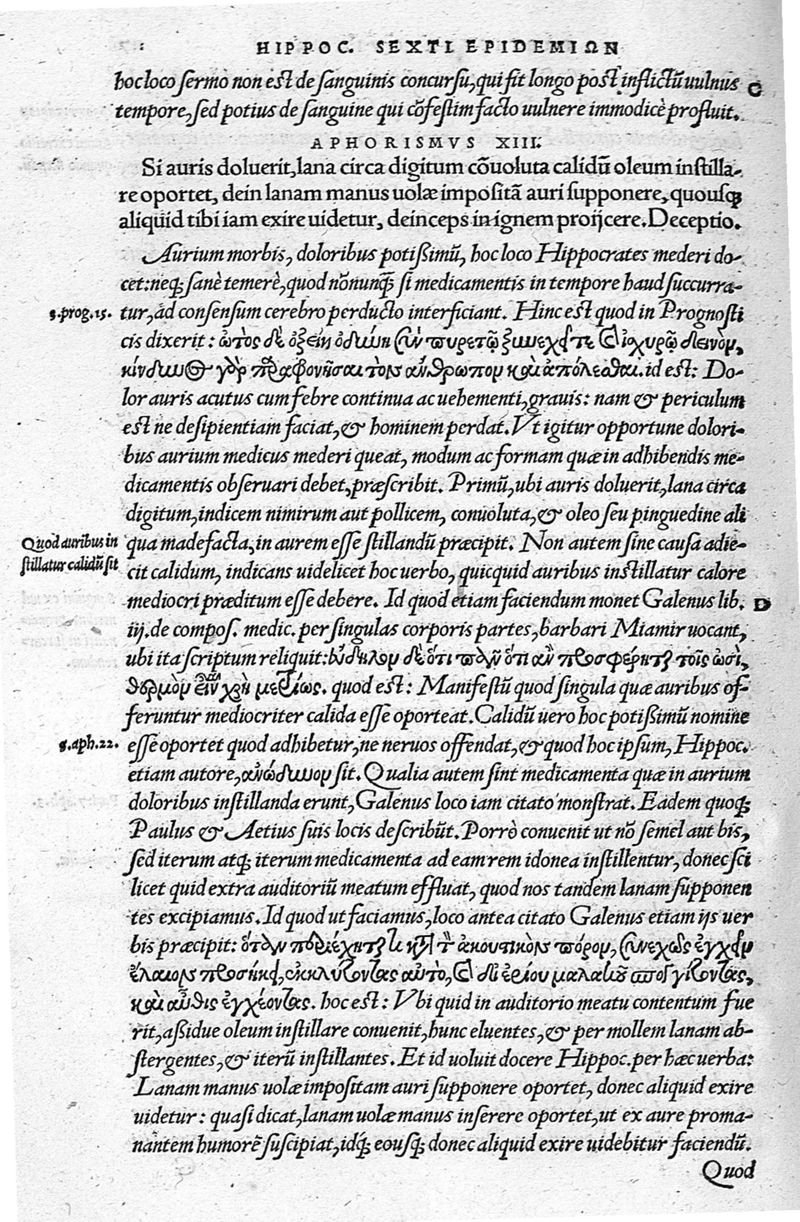 HIPPOC. SEXTI EPIDEMIΩN
hoc loco sermo non est de sanguinis concursu, qui fit longo post inflictū uulnus
C
tempore, sed potius de sanguine qui cōfestim facto uulnere immodicè profluit.
APHORISMVS XIII.
Si auris doluerit, lana circa digitum cōuoluta calidū oleum instilla-
re oportet, dein lanam manus uolæ impositā auri supponere, quousq;
aliquid tibi iam exire uidetur, deinceps in ignem proijcere. Deceptio.
Aurium morbis, doloribus potißimū, hoc loco Hippocrates mederi do-
cet: neq; sanè temerè, quod nōnunq̄ si medicamentis in tempore haud succurra-
3. prog. 15.
tur, ad consensum cerebro perducto interficiant. Hinc est quod in Prognosti
cis dixerit: ὠτὸς δὲ ὀξείη ὀδύνη σὺν πυρετῷ ξυνεχεῖ τε καὶ ἰσχυρῷ δεινὸν,
κίνδυνος γὰρ παραφρονῆσαι τὸν ἄνθρωπον καὶ ἀπόλεσθαι. id est: Do-
lor auris acutus cum febre continua ac uehementi, grauis: nam & periculum
est ne desipientiam faciat, & hominem perdat. Vt igitur opportune dolori-
bus aurium medicus mederi queat, modum ac formam quæ in adhibendis me-
dicamentis obseruari debet, præscribit. Primū, ubi auris doluerit, lana circa
digitum, indicem nimirum aut pollicem, conuoluta, & oleo seu pinguedine ali
Quod auribus in
stillatur calidū sit
qua madefacta, in aurem esse stillandū præcipit. Non autem sine causa adie-
cit calidum, indicans uidelicet hoc uerbo, quicquid auribus instillatur calore
mediocri præditum esse debere. Id quod etiam faciendum monet Galenus lib.
D
iij. de compos. medic. per singulas corporis partes, barbari Miamir uocant,
ubi ita scriptum reliquit: εὔδηλον δὲ ὅτι πᾶν ὅτι ἂν προσφέρηται τοῖς ὠσὶ,
θερμὸν εἶναι χρὴ μετρίως. quod est: Manifestū quod singula quæ auribus of-
feruntur mediocriter calida esse oporteat. Calidū uero hoc potißimū nomine
5. aph. 22.
esse oportet quod adhibetur, ne neruos offendat, & quod hoc ipsum, Hippoc.
etiam autore, ἀνώδυνον sit. Qualia autem sint medicamenta quæ in aurium
doloribus instillanda erunt, Galenus loco iam citato monstrat. Eadem quoq;
Paulus & Aetius suis locis describūt. Porrò conuenit ut nō semel aut bis,
sed iterum atq; iterum medicamenta ad eam rem idonea instillentur, donec sci
licet quid extra auditoriū meatum effluat, quod nos tandem lanam supponen
tes excipiamus. Id quod ut faciamus, loco antea citato Galenus etiam ijs uer
bis præcipit: ὅταν περιέχηταί τι κατὰ τὸν ἀκουστικὸν πόρον, συνεχῶς ἐγχεῖν
ἔλαιον προσήκει, ἐκκλύζοντας αὐτὸ, καὶ δι' ἐρίου μαλακοῦ σπογγίζοντας,
καὶ αὖθις ἐγχέοντας. hoc est: Vbi quid in auditorio meatu contentum fue
rit, aßidue oleum instillare conuenit, hunc eluentes, & per mollem lanam ab-
stergentes, & iterū instillantes. Et id uoluit docere Hippoc. per hæc uerba:
Lanam manus uolæ impositam auri supponere oportet, donec aliquid exire
uidetur: quasi dicat, lanam uolæ manus inserere oportet, ut ex aure proma-
nantem humorē suscipiat, idq; eousq; donec aliquid exire uidebitur faciendū.
Quod